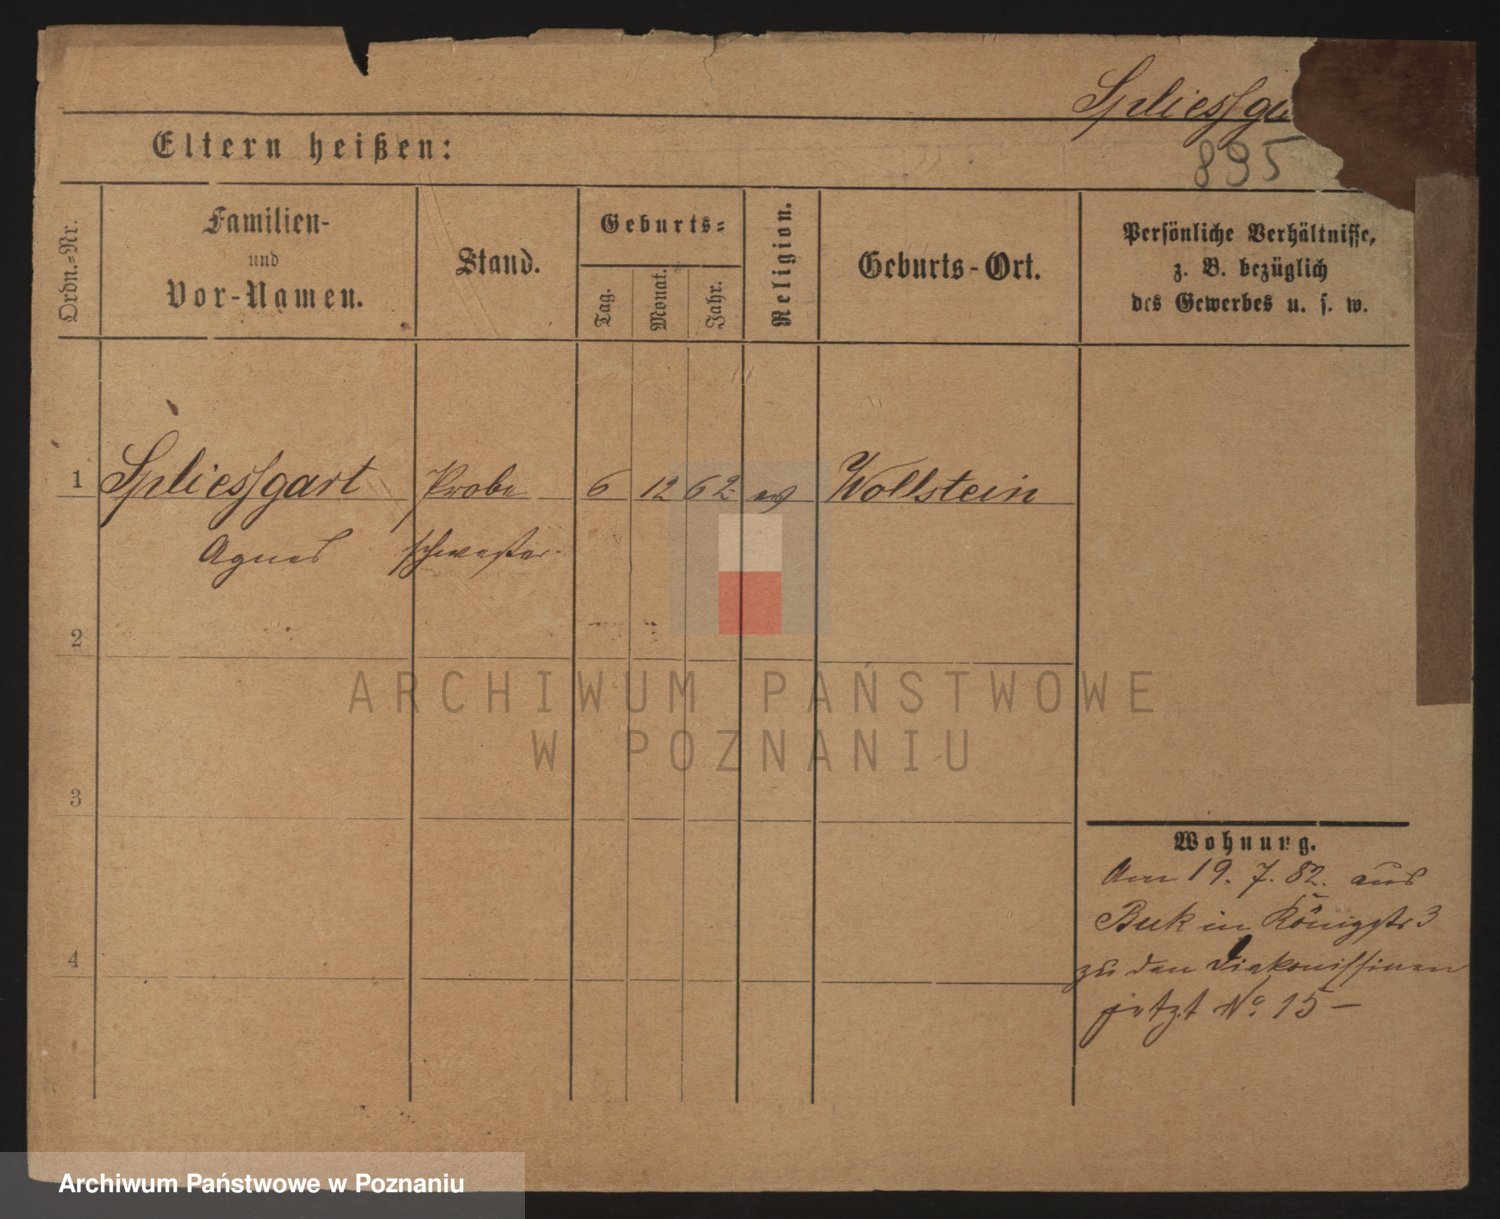 Spliessga
895
Eltern heißen:
Ordn.=Nr.
Familien-
und
Vor-Namen.
Stand.
Geburts=
Tag.
Monat.
Jahr.
Religion.
Geburts-Ort.
Persönliche Verhältnisse,
z. B. bezüglich
des Gewerbes u. s. w.
1 Spliessgart Probe 6 12 62. ev Wollstein
Agnes schwester
2
3
4
Wohnung.
Am 19. 7. 82. aus
Buk in Königstr 3
zu den Diakonissinen
jetzt No 15 –
ARCHIWUM PAŃSTWOWE
W POZNANIU
Archiwum Państwowe w Poznaniu